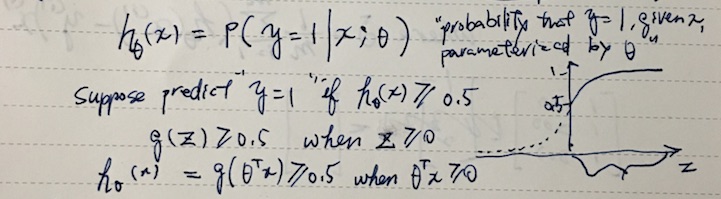 h_θ(x) = P(y=1|x;θ) "probability that y=1, given x,
parameterized by θ"
suppose predict "y=1" if h_θ(x) ⩾ 0.5
g(z) ⩾ 0.5 when z ⩾ 0
h_θ(x) = g(θᵀx) ⩾ 0.5 when θᵀx ⩾ 0
1
0.5
z